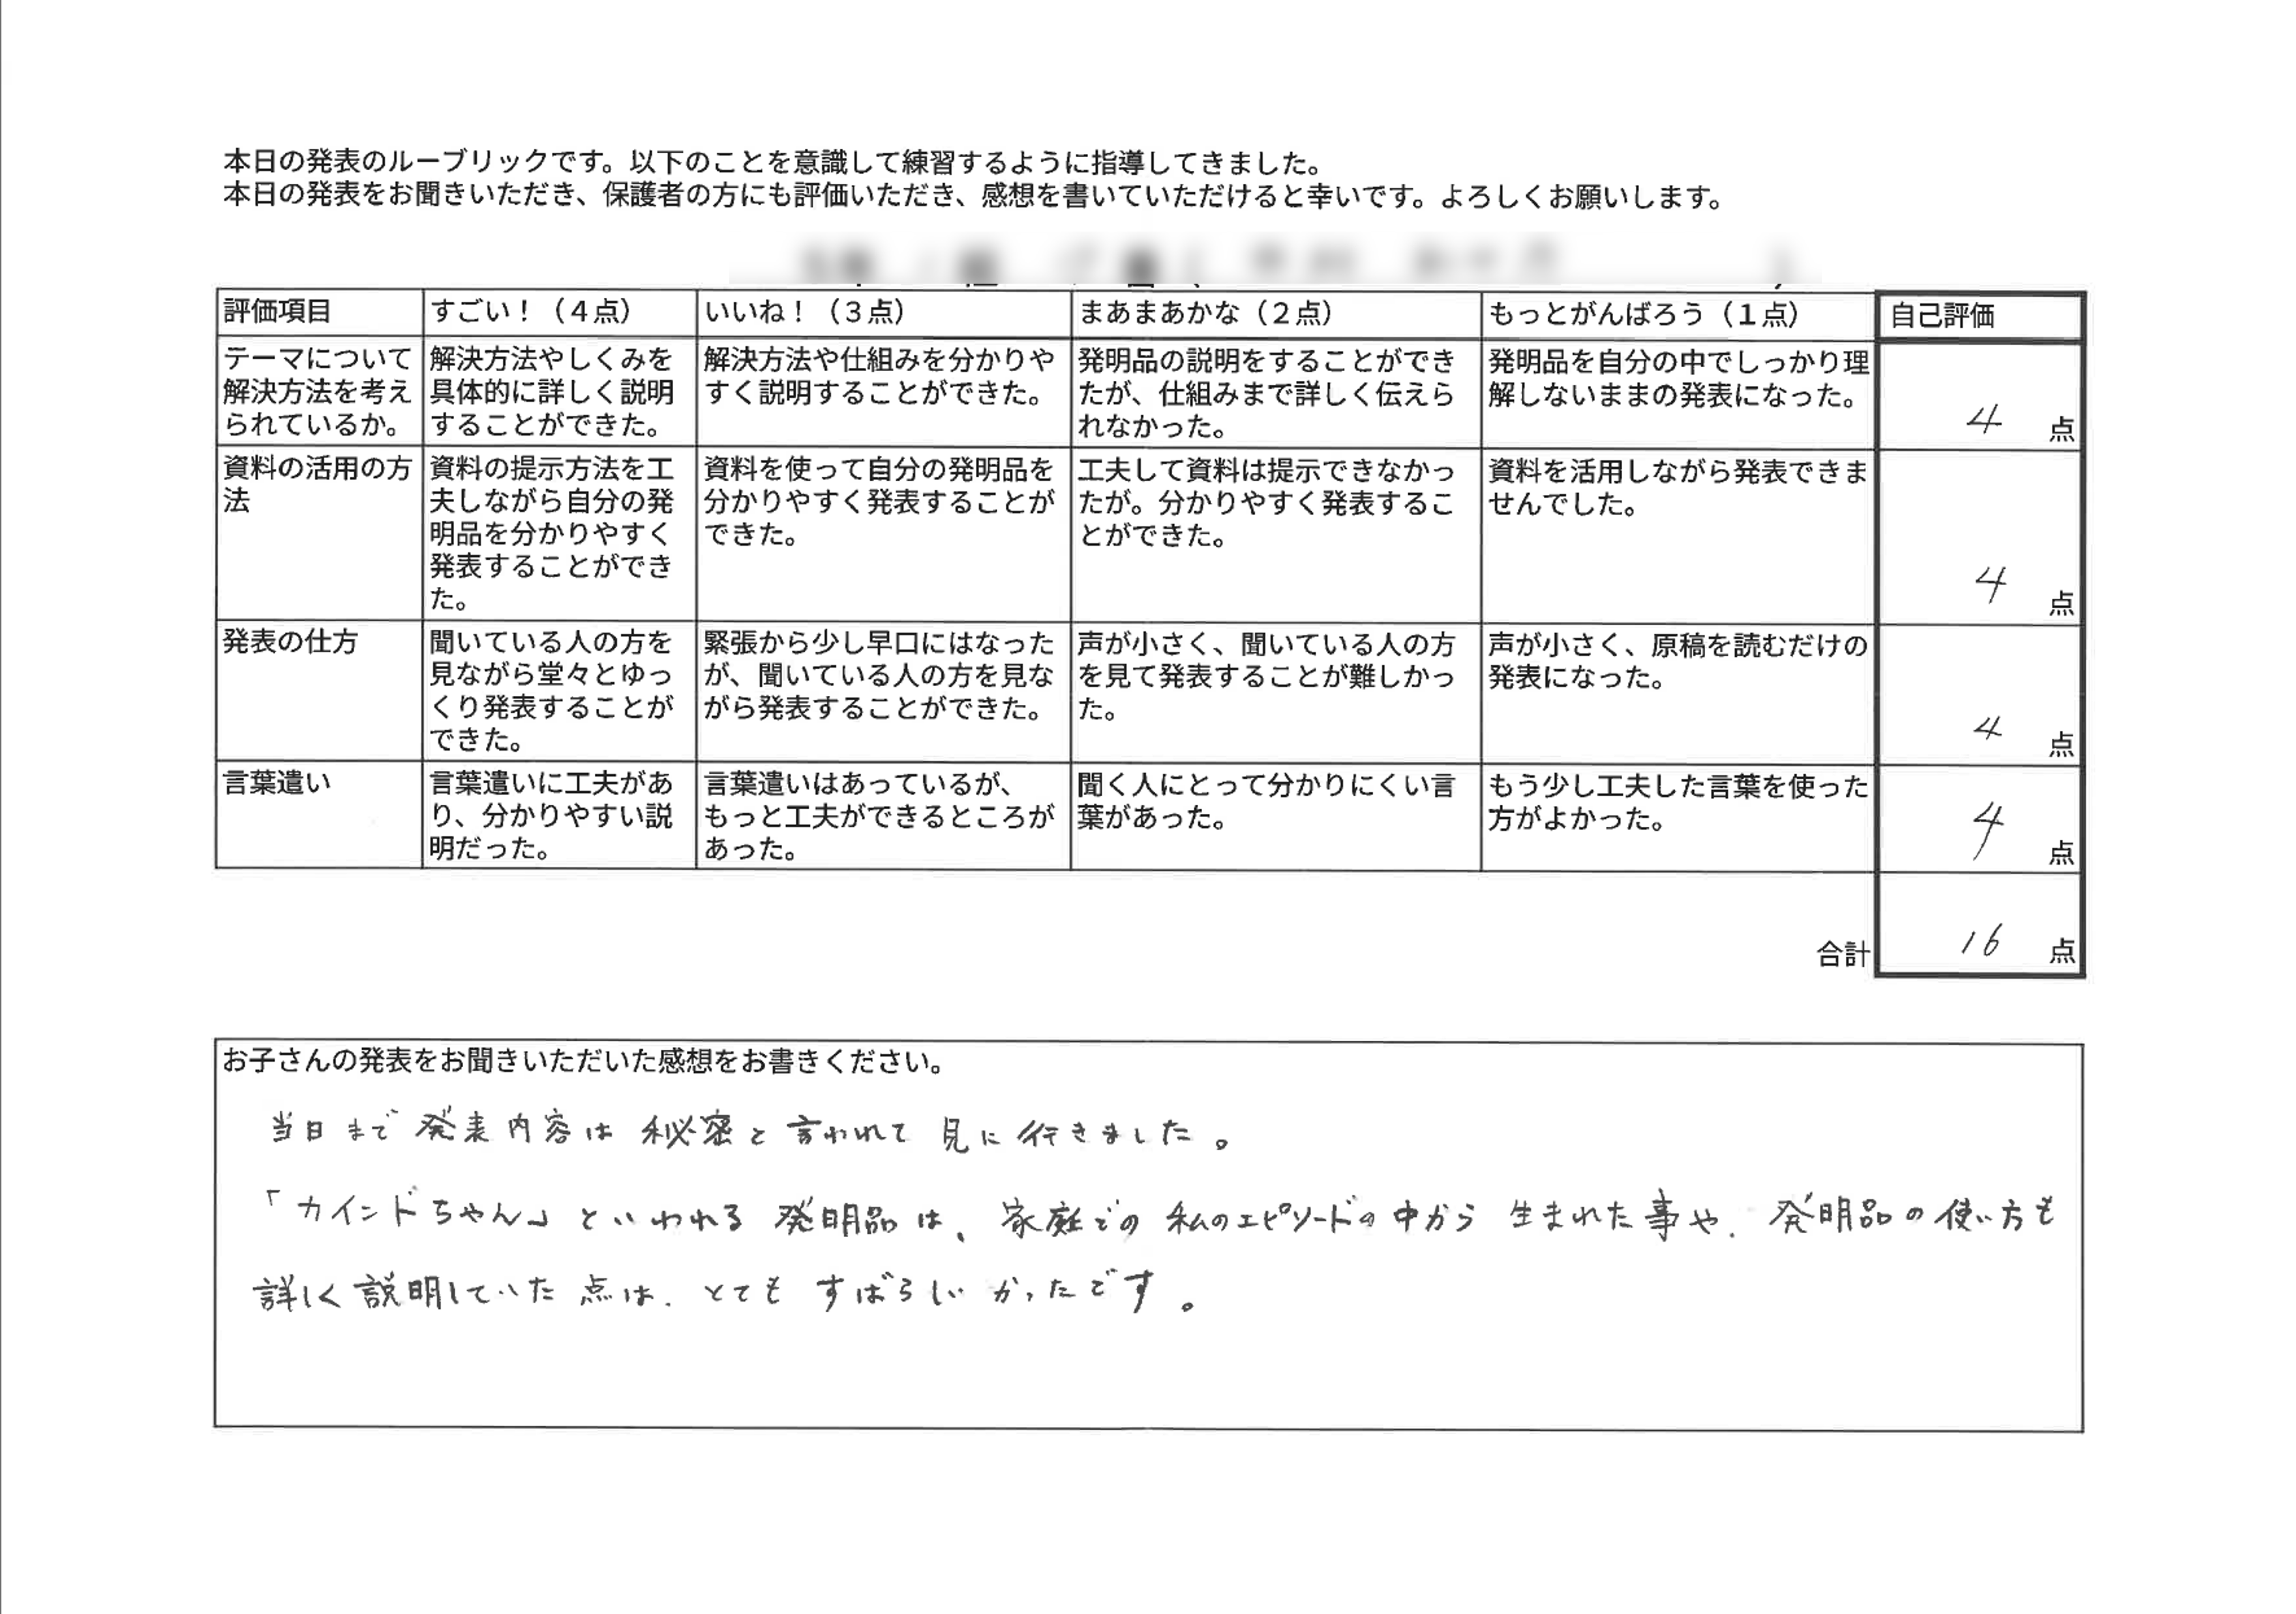 本日の発表のルーブリックです。以下のことを意識して練習するように指導してきました。
本日の発表をお聞きいただき、保護者の方にも評価いただき、感想を書いていただけると幸いです。よろしくお願いします。
評価項目
すごい！（４点）
いいね！（３点）
まあまあかな（２点）
もっとがんばろう（１点）
自己評価
テーマについて
解決方法を考え
られているか。
解決方法やしくみを
具体的に詳しく説明
することができた。
解決方法や仕組みを分かりや
すく説明することができた。
発明品の説明をすることができ
たが、仕組みまで詳しく伝えら
れなかった。
発明品を自分の中でしっかり理
解しないままの発表になった。
4 点
資料の活用の方
法
資料の提示方法を工
夫しながら自分の発
明品を分かりやすく
発表することができ
た。
資料を使って自分の発明品を
分かりやすく発表することが
できた。
工夫して資料は提示できなかっ
たが。分かりやすく発表するこ
とができた。
資料を活用しながら発表できま
せんでした。
4 点
発表の仕方
聞いている人の方を
見ながら堂々とゆっ
くり発表することが
できた。
緊張から少し早口にはなった
が、聞いている人の方を見な
がら発表することができた。
声が小さく、聞いている人の方
を見て発表することが難しかっ
た。
声が小さく、原稿を読むだけの
発表になった。
4 点
言葉遣い
言葉遣いに工夫があ
り、分かりやすい説
明だった。
言葉遣いはあっているが、
もっと工夫ができるところが
あった。
聞く人にとって分かりにくい言
葉があった。
もう少し工夫した言葉を使った
方がよかった。
4 点
合計 16 点
お子さんの発表をお聞きいただいた感想をお書きください。
当日まで発表内容は秘密と言われて見に行きました。
「カインドちゃん」といわれる発明品は、家庭での私のエピソードの中から生まれた事や、発明品の使い方も
詳しく説明していた点は、とてもすばらしいかったです。